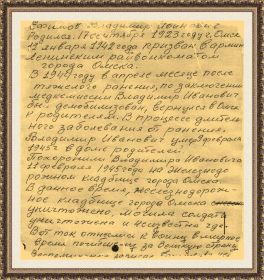 Ефимов Владимир Иванович
Родился 17 сентября 1923 году г. Омск
12 января 1942 года призван в армию
Ленинским райвоенкоматом
города Омска.
В 1944 году в апреле месяце после
тяжелого ранения, по заключению
медкомиссии Владимир Иванович
был демобилизован, вернулся в Омск
к родителям. В процессе длитель
ного заболевания от ранения,
Владимир Иванович умер февраля
1945 г в доме родителей.
Похоронили Владимира Ивановича
11 февраля 1945 года на Железнодо
рожном кладбище города Омска.
В данное время, железнодорож-
ное кладбище города Омска
уничтожено, могила солдата
уничтожена и неизвестно где.
Вот так отнеслись к воину в
время погибшему за